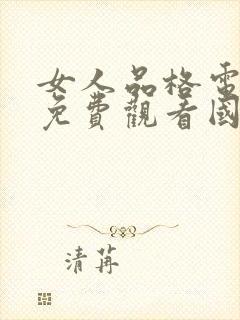 女人品格電
免費觀看國
清苒